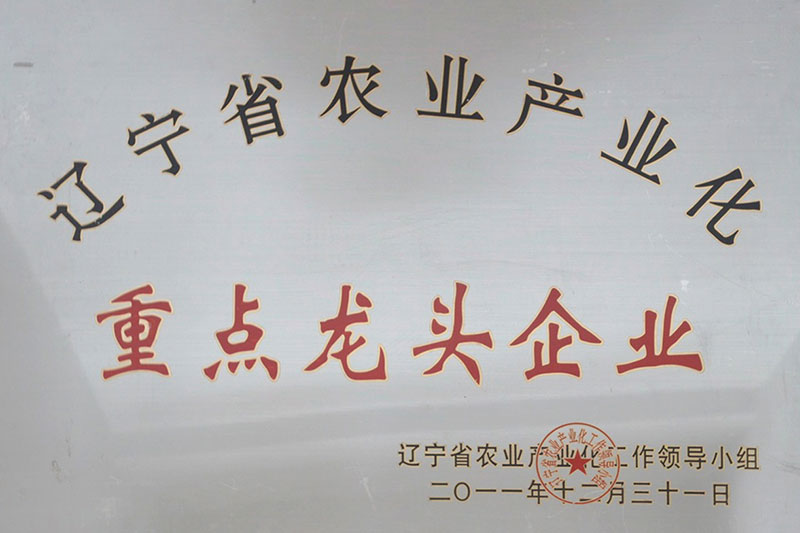 辽宁省农业产业化
重点龙头企业
辽宁省农业产业化工作领导小组
二〇一一年十二月三十一日
辽宁省农业产业化工作领导小组